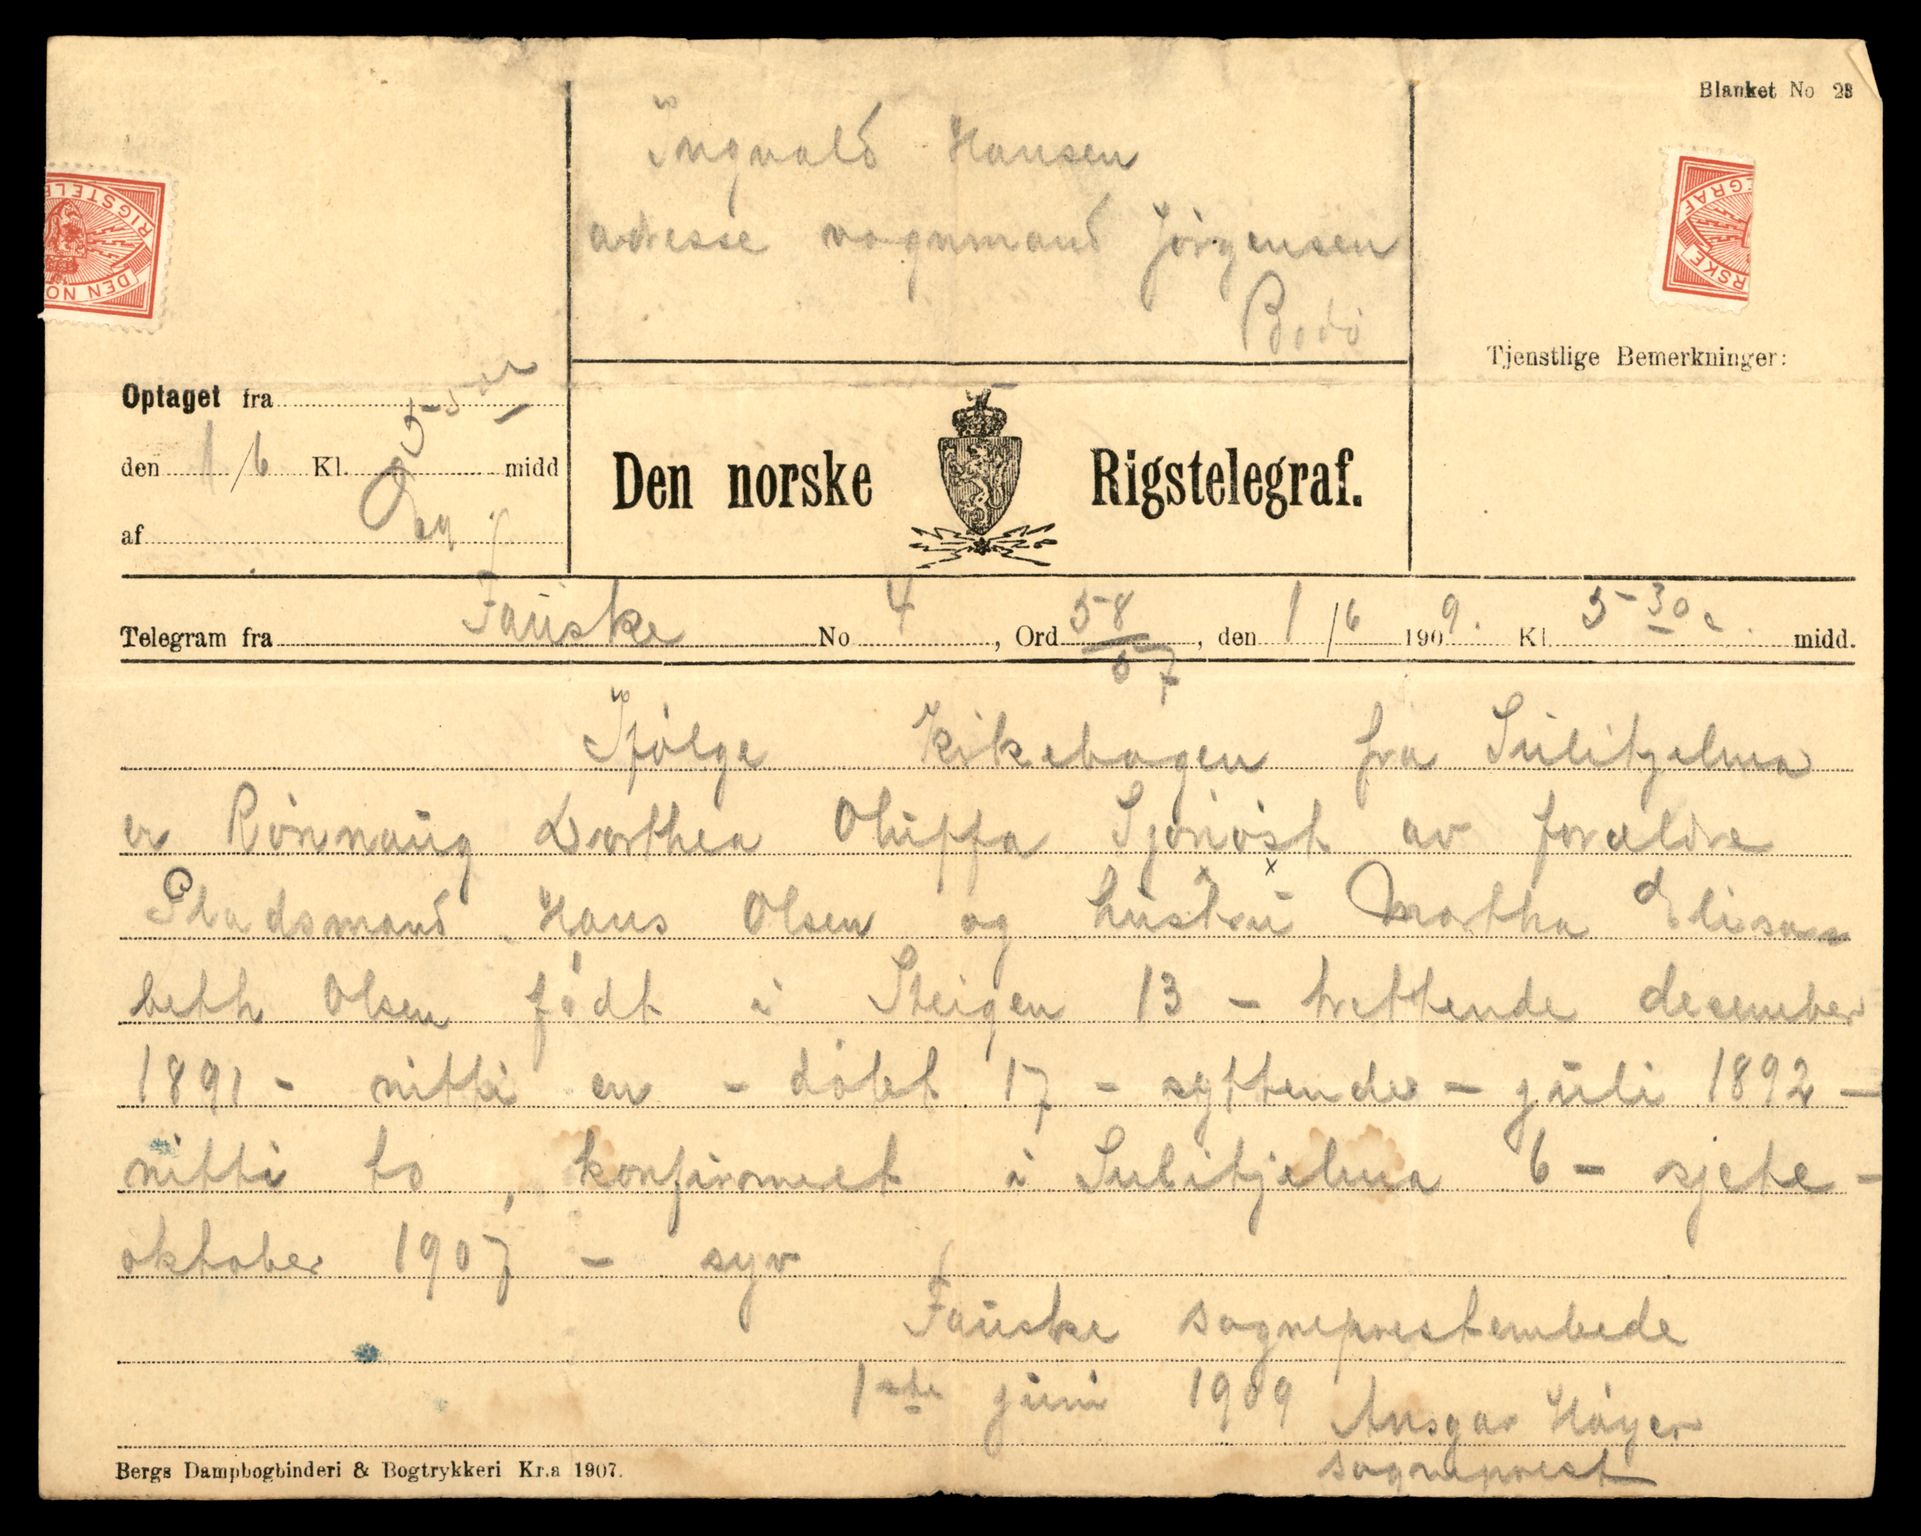 Blanket No 23
Ingvald Hansen
adresse vognmand Jörgensen
Bodö
RIGSTELE
DEN NO
EGRAF
RSKE
Tjenstlige Bemerkninger:
Optaget fra
5-5
den 1/6 Kl. midd
af
Den norske Rigstelegraf.
Telegram fra Fauske No 4, Ord 58/57, den 1/6 1909. Kl. 5-30 midd.
Ifölge Kirkebogen fra Sulitjelma
er Rönnaug Dorthea Oluffa Sjonöst av forældre
Pladsmand Hans Olsen og hustru Martha Elisa=
beth Olsen födt i Steigen 13 - trettende desember
1891 - nitti en - döbt 17 - syttende - juli 1892 -
nitti to, konfirmert i Sulitjelma 6 - sjete -
oktober 1907 - syv
Fauske sogneprestembede
1ste juni 1909 Ansgar Höyer
sogneprest
Bergs Dampbogbinderi & Bogtrykkeri Kr.a 1907.